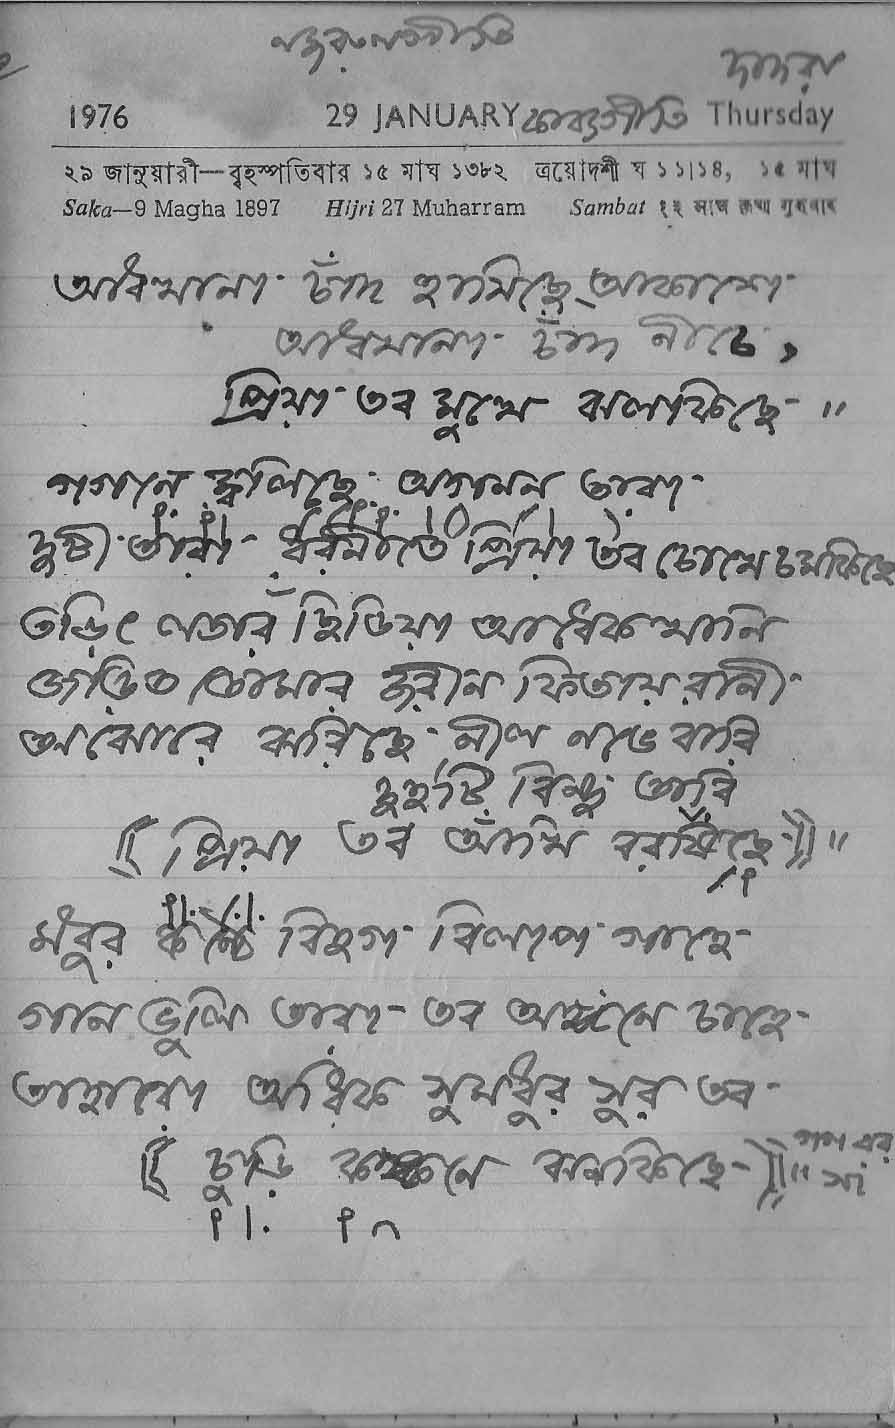 নজরুলগীতি
দাদরা
1976 29 JANUARY কাব্যগীতি Thursday
২৯ জানুয়ারী—বৃহস্পতিবার ১৫ মাঘ ১৩৮২ ত্রয়োদশী ঘ ১১।১৪, ১৫ মাঘ
Saka—9 Magha 1897 Hijri 27 Muharram Sambat १३ माघ
আধখানা চাঁদ হাসিছে আকাশে
আধখানা চাঁদ নীচে,
প্রিয়া তব মুখে ঝলকিছে ॥
গগনে জ্বলিছে অগনন তারা
দুটী তারা ধরনীতে প্রিয়া তব চোখে চমকিছে
তড়িৎ লতার ছিঁড়িয়া আধেক খানি
জড়িত তোমার জরীন ফিতায় রানী
অঝোরে ঝরিছে নীল নভে বারি
দুইটি বিন্দু তারি
প্রিয়া তব আঁখি বরষিছে ॥
মধুর কন্ঠে বিহগ বিলাপ গাহে
গান ভুলি তারা তব অঙ্গনে চাহে
তাহারো অধিক সুমধুর সুর তব
চুড়ি কঙ্কনে ঝনকিছে ॥